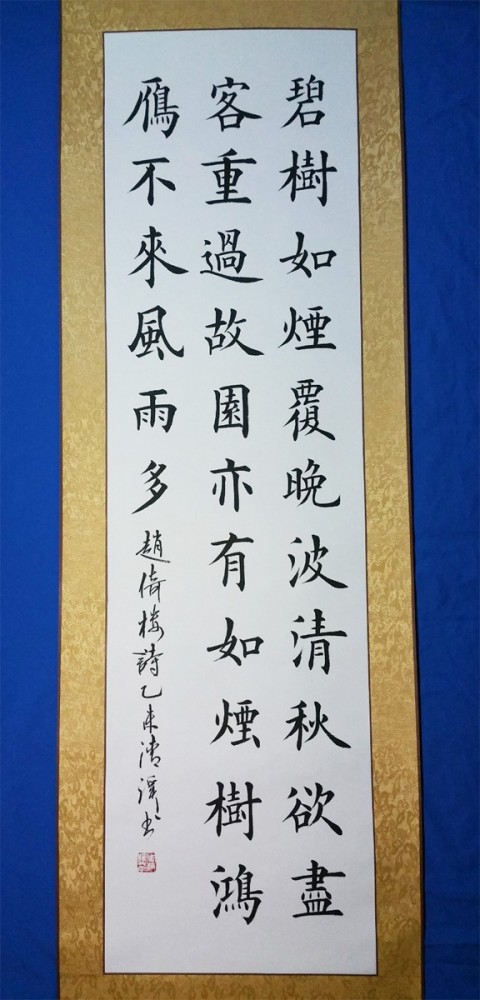 碧樹如煙覆晚波清秋欲盡
客重過故園亦有如煙樹鴻
鴈不來風雨多
趙倚樓詩乙未書